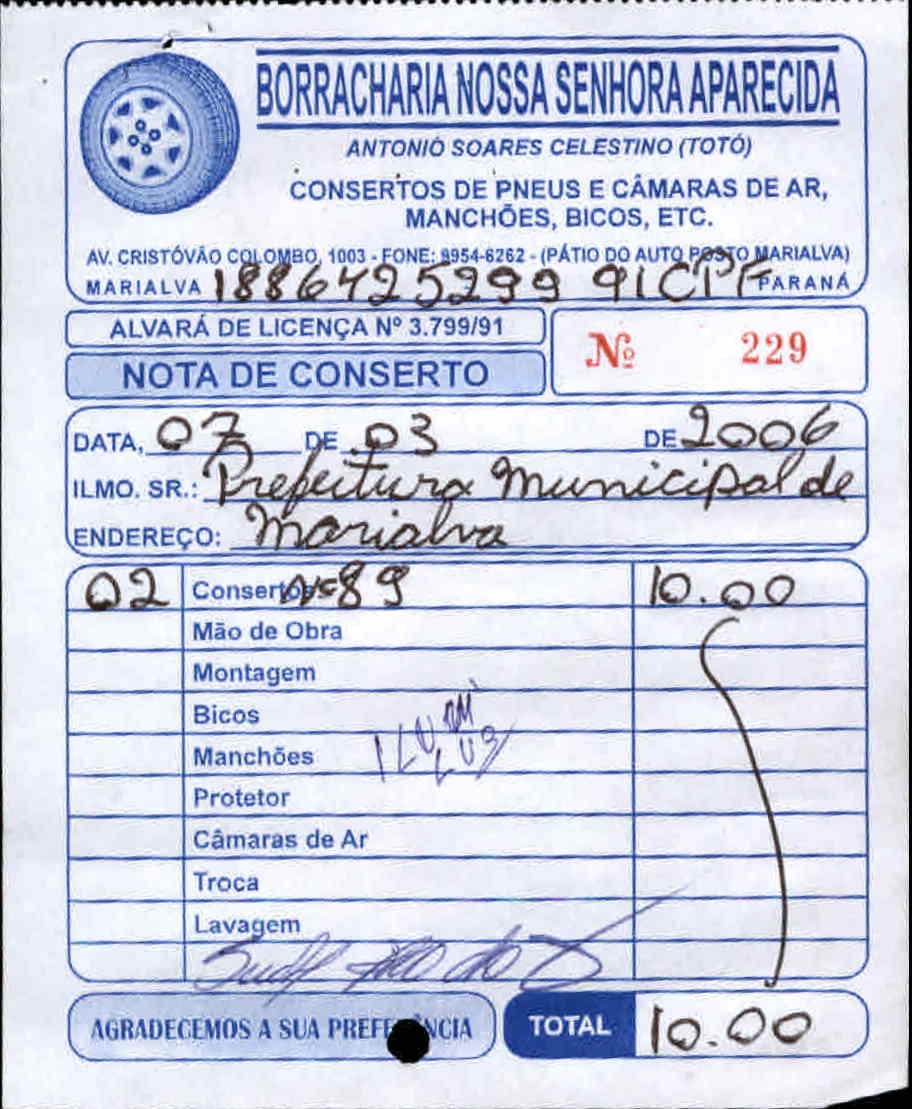 BORRACHARIA NOSSA SENHORA APARECIDA
ANTONIO SOARES CELESTINO (TOTÓ)
CONSERTOS DE PNEUS E CÂMARAS DE AR,
MANCHÕES, BICOS, ETC.
AV. CRISTÓVÃO COLOMBO, 1003 - FONE: 9954-6262 - (PÁTIO DO AUTO POSTO MARIALVA)
MARIALVA 18864725299 91 CPF PARANÁ
ALVARÁ DE LICENÇA Nº 3.799/91
Nº 229
NOTA DE CONSERTO
DATA, 07 DE 03 DE 2006
ILMO. SR.: Prefeitura Municipal de
ENDEREÇO: Marialva
02 Consertos 89 10.00
Mão de Obra
Montagem
Bicos
Manchões
Protetor
Câmaras de Ar
Troca
Lavagem
AGRADECEMOS A SUA PREFERÊNCIA
TOTAL 10.00